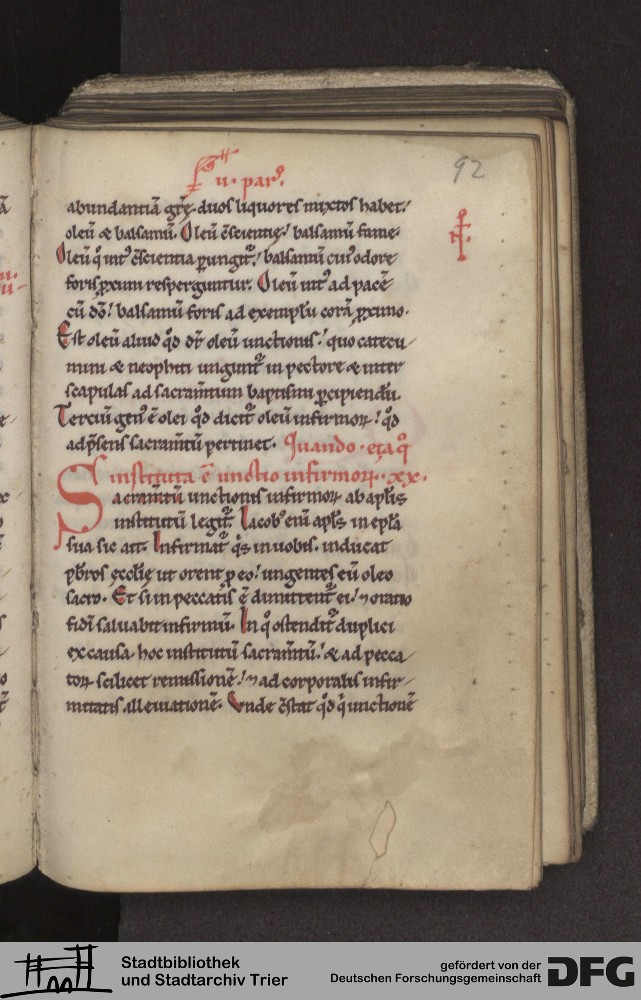 92
ıı · parꝰ.
abundantiā gr̄e. duos liquores mixtos habet.
oleū & balsamū. Oleū c̄scientie, balsamū fame.
Oleū q̊ int̄ c̄scientia p̲ungit᷑, balsamū cuiꝰ odore
foris p̲xcimi resperguntur. Oleū int᷑ ad pacē
cū dō, balsamū foris ad exemplū corā p̲xcimo.
Est oleū aliud qd̄ dr̄ oleū unctionis, quo catecu
mini & neophiti ungunt᷑ in pectore & inter
scapulas ad sacram̄tum baptismi p̲cipiendū.
Terciū genꝰ ē olei qd̄ dicit᷑ oleū infirmoꝝ, qd̄
ad p̄sens sacram̄tū pertinet. Quando · & a q̊
instituta ē unctio infirmoꝝ. xx.
Sacram̄tū unctionis infirmoꝝ ab ap̄lis
institutū legit᷑. Iacobꝰ eni ap̄ls in ep̄la
sua sic ait. Infirmat᷑ q̄s in uobis. inducat
p̄bros eccl̄ie ut orent p̲ eo, ungentes eū oleo
sacro. Et si in peccatis ē dimittent᷑ ei, ⁊ oratio
fidei saluabit infirmū. In q̊ ostendit᷑ duplici
ex causa. hoc institutū sacram̄tū, & ad pecca
toꝝ scilicet remissionē, ⁊ ad corporalis infir
mitatis alleuiationē. Vnde c̄stat qd̄ q̇ unctionē
Stadtbibliothek
und Stadtarchiv Trier
gefördert von der
Deutschen Forschungsgemeinschaft
DFG